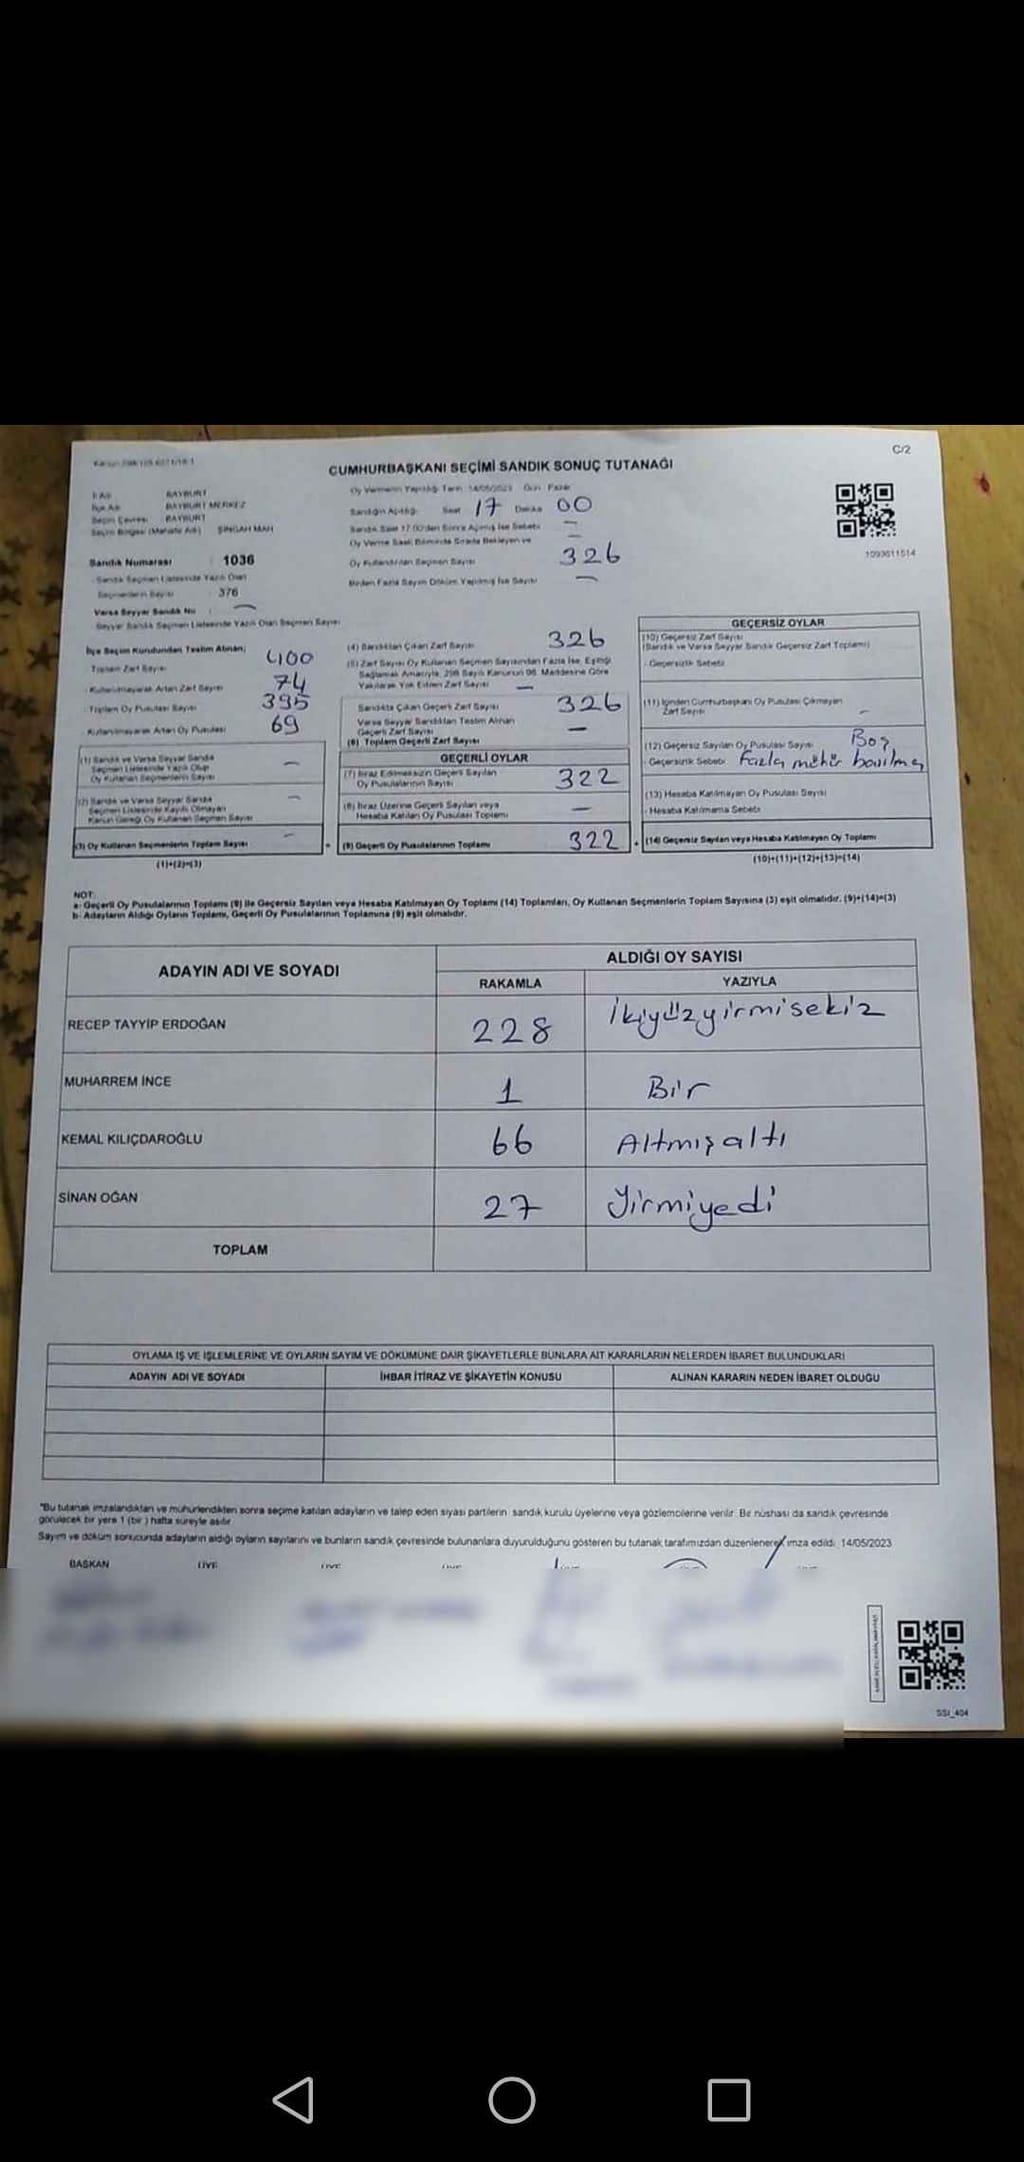 C/2
CUMHURBAŞKANI SEÇİMİ SANDIK SONUÇ TUTANAĞI
İl Adı BAYBURT
İlçe Adı BAYBURT MERKEZ
Seçim Çevresi BAYBURT
Seçim Bölgesi (Mahalle Adı) ŞİNGAH MAH
Sandık Numarası : 1036
Sandık Seçmen Listesinde Yazılı Olan
Seçmenlerin Sayısı : 376
Varsa Seyyar Sandık No : —
Seyyar Sandık Seçmen Listesinde Yazılı Olan Seçmen Sayısı
Oy Vermenin Yapıldığı Tarih 14/05/2023 Gün Pazar
Sandığın Açıldığı Saat 17 Dakika 00
Sandık Saat 17.00'den Sonra Açılmış İse Sebebi —
Oy Verme Saati Bitiminde Sırada Bekleyen ve
Oy Kullandırılan Seçmen Sayısı 326
Birden Fazla Sayım Döküm Yapılmış İse Sayısı —
1093611514
İlçe Seçim Kurulundan Teslim Alınan;
Toplam Zarf Sayısı 400
Kullanılmayarak Artan Zarf Sayısı 74
Toplam Oy Pusulası Sayısı 395
Kullanılmayarak Artan Oy Pusulası 69
(1) Sandık ve Varsa Seyyar Sandık
Seçmen Listesinde Yazılı Olup
Oy Kullanan Seçmenlerin Sayısı —
(2) Sandık ve Varsa Seyyar Sandık
Seçmen Listesinde Kayıtlı Olmayan
Kanun Gereği Oy Kullanan Seçmen Sayısı —
(3) Oy Kullanan Seçmenlerin Toplam Sayısı —
(1)+(2)=(3)
(4) Sandıktan Çıkan Zarf Sayısı 326
(5) Zarf Sayısı Oy Kullanan Seçmen Sayısından Fazla İse, Eşitliği
Sağlamak Amacıyla, 298 Sayılı Kanunun 98. Maddesine Göre
Yakılarak Yok Edilen Zarf Sayısı —
Sandıkta Çıkan Geçerli Zarf Sayısı 326
Varsa Seyyar Sandıktan Teslim Alınan
Geçerli Zarf Sayısı —
(6) Toplam Geçerli Zarf Sayısı
GEÇERLİ OYLAR
(7) İtiraz Edilmeksizin Geçerli Sayılan
Oy Pusulalarının Sayısı 322
(8) İtiraz Üzerine Geçerli Sayılan veya
Hesaba Katılan Oy Pusulası Toplamı —
(9) Geçerli Oy Pusulalarının Toplamı 322
GEÇERSİZ OYLAR
(10) Geçersiz Zarf Sayısı
(Sandık ve Varsa Seyyar Sandık Geçersiz Zarf Toplamı)
- Geçersizlik Sebebi
(11) İçinden Cumhurbaşkanı Oy Pusulası Çıkmayan
Zarf Sayısı —
(12) Geçersiz Sayılan Oy Pusulası Sayısı Boş
- Geçersizlik Sebebi Fazla mühür basılmış
(13) Hesaba Katılmayan Oy Pusulası Sayısı
- Hesaba Katılmama Sebebi
(14) Geçersiz Sayılan veya Hesaba Katılmayan Oy Toplamı
(10)+(11)+(12)+(13)=(14)
NOT:
a- Geçerli Oy Pusulalarının Toplamı (9) ile Geçersiz Sayılan veya Hesaba Katılmayan Oy Toplamı (14) Toplamları, Oy Kullanan Seçmenlerin Toplam Sayısına (3) eşit olmalıdır. (9)+(14)=(3)
b- Adayların Aldığı Oyların Toplamı, Geçerli Oy Pusulalarının Toplamına (9) eşit olmalıdır.
ADAYIN ADI VE SOYADI ALDIĞI OY SAYISI
RAKAMLA YAZIYLA
RECEP TAYYİP ERDOĞAN 228 İkiyüzyirmisekiz
MUHARREM İNCE 1 Bir
KEMAL KILIÇDAROĞLU 66 Altmışaltı
SİNAN OĞAN 27 Yirmiyedi
TOPLAM
OYLAMA İŞ VE İŞLEMLERİNE VE OYLARIN SAYIM VE DÖKÜMÜNE DAİR ŞİKAYETLERLE BUNLARA AİT KARARLARIN NELERDEN İBARET BULUNDUKLARI
ADAYIN ADI VE SOYADI İHBAR İTİRAZ VE ŞİKAYETİN KONUSU ALINAN KARARIN NEDEN İBARET OLDUĞU
"Bu tutanak imzalandıktan ve mühürlendikten sonra seçime katılan adayların ve talep eden siyasi partilerin sandık kurulu üyelerine veya gözlemcilerine verilir. Bir nüshası da sandık çevresinde
görülecek bir yere 1 (bir ) hafta süreyle asılır.
Sayım ve döküm sonucunda adayların aldığı oyların sayılarını ve bunların sandık çevresinde bulunanlara duyurulduğunu gösteren bu tutanak tarafımızdan düzenlenerek imza edildi. 14/05/2023
BAŞKAN ÜYE ÜYE
SSI_404